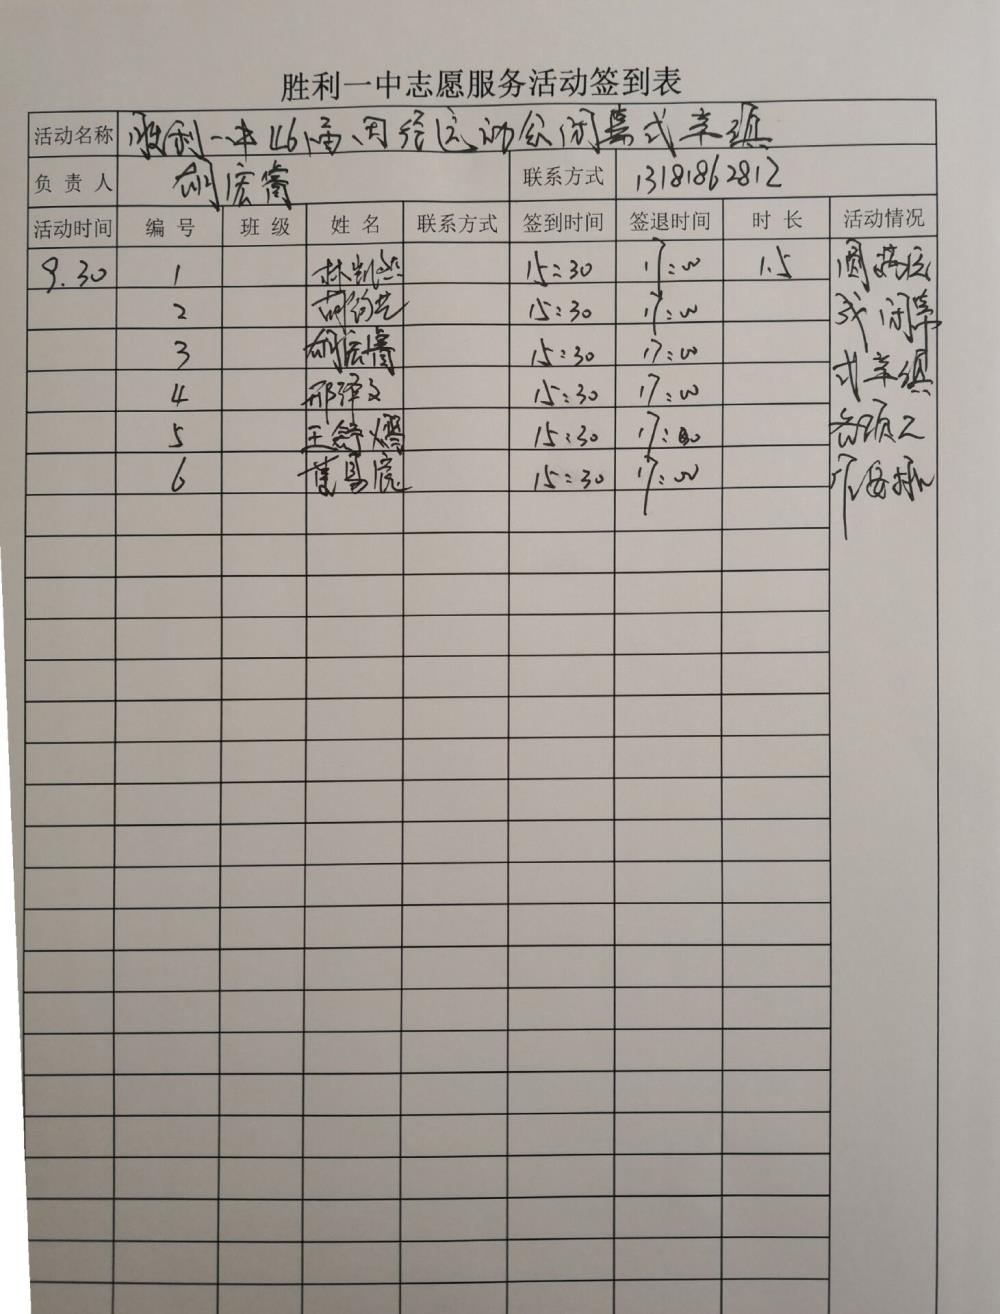 胜利一中志愿服务活动签到表
活动名称 胜利一中46届田径运动会闭幕式
负责人 宏睿 联系方式 13181862812
活动时间 编号 班级 姓名 联系方式 签到时间 签退时间 时长 活动情况
9.30 1 林凯 15:30 17:00 1.5 圆满完
2 15:30 17:00 成闭幕
3 宏睿 15:30 17:00
4 邢泽文 15:30 17:00 式
5 王舒 15:30 17:00 各项工
6 15:30 17:00 作安排